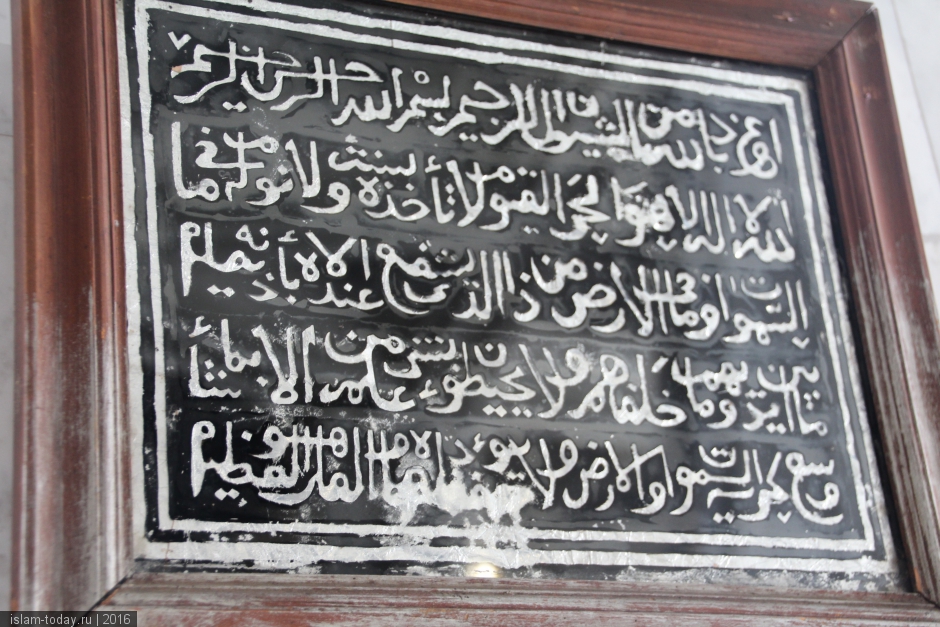 اعوذ بالله من الشيطان الرجيم بسم الله الرحمن الرحيم
الله لا اله الا هو الحي القيوم لا تأخذه سنة ولا نوم له ما في
السموات وما في الارض من ذا الذي يشفع عنده الا بأذنه يعلم
ما بين ايديهم وما خلفهم ولا يحيطون بشئ من علمه الا بما شاء
وسع كرسيه السموات والارض ولا يؤده حفظهما وهو العلي العظيم
islam-today.ru | 2016